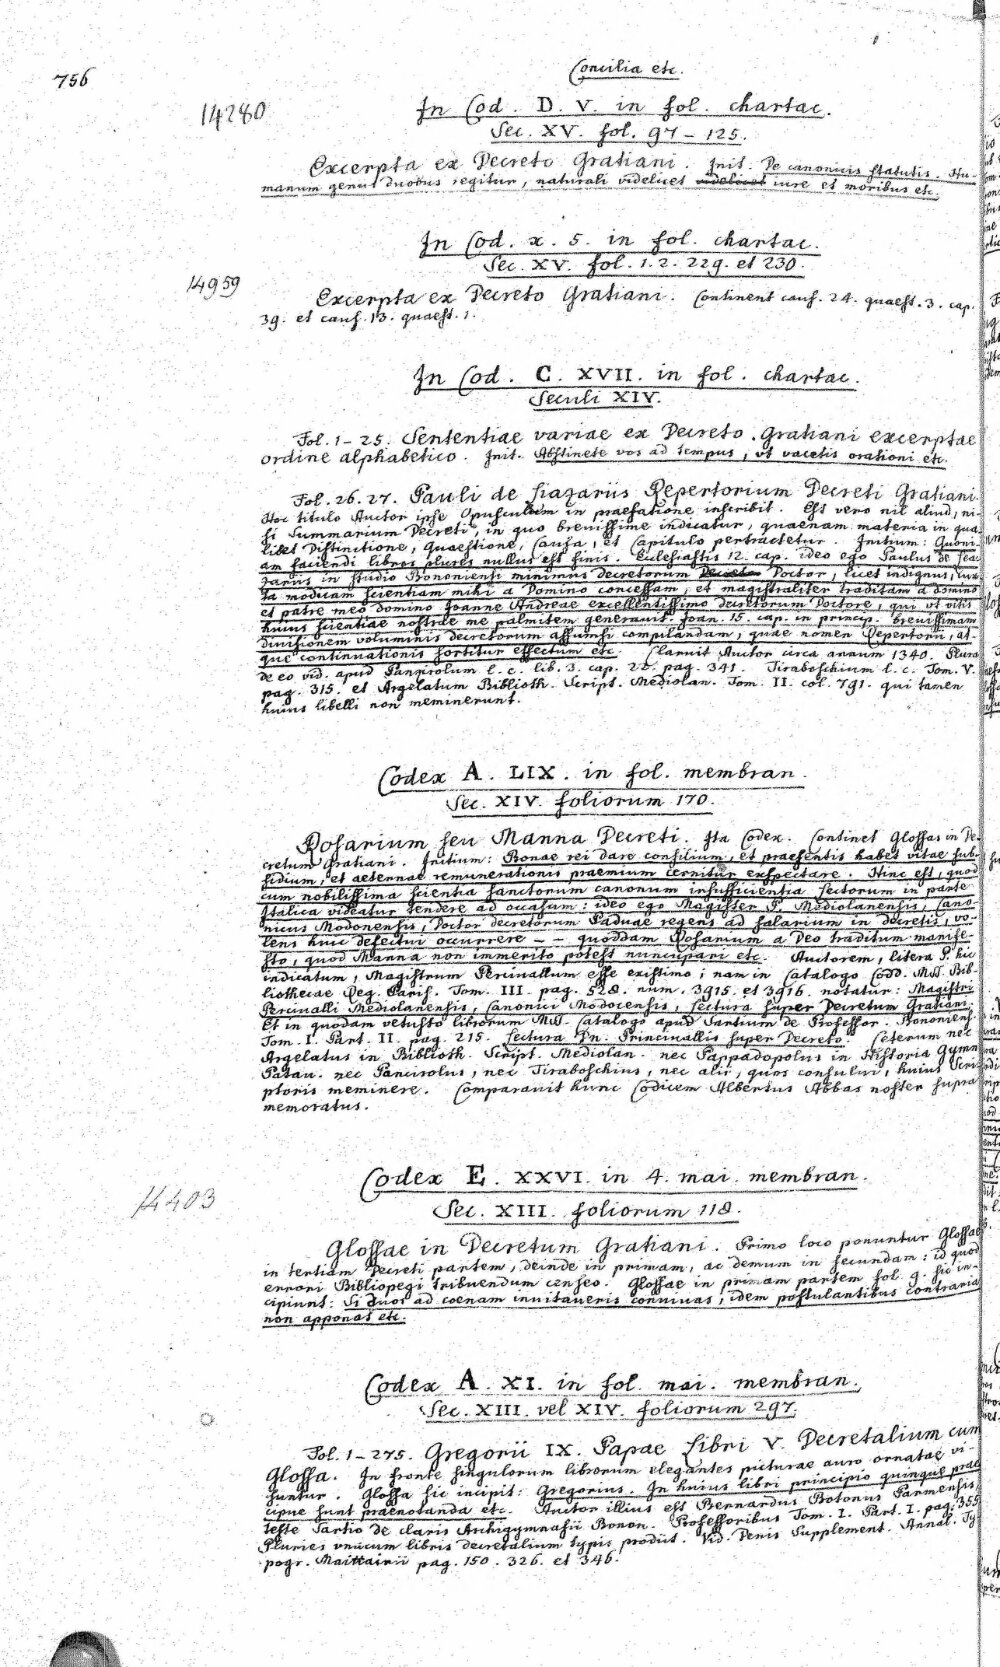 756
Concilia etc.
14280
In Cod. D. V. in fol. chartac.
Sec. XV. fol. 97 – 125.
Excerpta ex Decreto Gratiani. Init. De canonicis statutis. Hu-
manum genus duobus regitur, naturali videlicet videlicet iure et moribus etc.
In Cod. X. 5. in fol. chartac.
Sec. XV. fol. 1. 2. 229. et 230.
14959
Excerpta ex Decreto Gratiani. Continent caus. 24. quaest. 3. cap.
39. et caus. 13. quaest. 1.
In Cod. C. XVII. in fol. chartac.
Seculi XIV.
Fol. 1 – 25. Sententiae variae ex Decreto. Gratiani excerptae
ordine alphabetico. Init. Abstinete vos ad tempus, vt vacetis orationi etc.
Fol. 26. 27. Pauli de Liazariis Repertorium Decreti Gratiani.
Hoc titulo Auctor ipse Opusculum in praefatione inscribit. Est vero nil aliud, ni-
si Summarium Decreti, in quo brevissime indicatur, quaenam materia in qua
libet Distinctione, Quaestione, Causa, et Capitulo pertractetur. Initium: Quoni-
am faciendi libros plures nullus est finis. Eclesiastis 12. cap. ideo ego Paulus de Lea-
zariis in studio Bononiensi minimus decretorum Doctor, licet indignus, iux-
ta modicam scientiam mihi a Domino concessam, et magistraliter traditam a domino
et patre meo domino Joanne Andreae excellentissimo decretorum Doctore, qui vt vitis
huius scientiae nostrae me palmitem generauit. Joan. 15. cap. in princip. breuissimam
diuisionem voluminis decretorum assumsi compilandam, quae nomen Repertorii, at-
que continuationis sortitur effectum etc. Claruit Auctor circa annum 1340. Plura
de eo vid. apud Panzirolum l. c. lib. 3. cap. 22. pag. 341. Tiraboschium l. c. Tom. V.
pag. 315. et Argelatum Biblioth. Script. Mediolan. Tom. II. col. 791. qui tamen
huius libelli non meminerunt.
Codex A. LIX. in fol. membran.
Sec. XIV. foliorum 170.
Rosarium seu Manna Decreti. Ita Codex. Continet Glossas in De-
cretum Gratiani. Initium: Bonae rei dare consilium, et praesentis habet vitae sub-
sidium, et aeternae remunerationis praemium cernitur exspectare. Hinc est, quod
cum nobilissima scientia sanctorum canonum insufficientia Lectorum in parte
Italica videatur tendere ad occasum: ideo ego Magister P. Mediolanensis, Cano-
nicus Modonensis, Doctor decretorum Paduae regens ad salarium in decretis, vo-
lens huic defectui occurrere – – quoddam Rosarium a Deo traditum manife-
sto, quod Manna non immerito potest nuncupari etc. Auctorem, litera P. hic
indicatum, Magistrum Percinallum esse existimo; nam in Catalogo Codd. Mss. Bib-
liothecae Reg. Paris. Tom. III. pag. 528. num. 3915. et 3916. notatur: Magistri
Percinalli Mediolanensis, Canonici Modocensis, Lectura super Decretum Gratiani.
Et in quodam vetusto librorum Mss. Catalogo apud Sartium de Professor. Bononiens.
Tom. I. Part. II. pag. 215. Lectura Dn. Princinallis super Decreto. Ceterum nec
Argelatus in Biblioth. Script. Mediolan. nec Pappadopolus in Historia Gymn.
Patau. nec Pancirolus, nec Tiraboschius, nec alii, quos consului, huius Scri-
ptoris meminere. Comparauit hunc Codicem Albertus Abbas noster supra
memoratus.
Codex E. XXVI. in 4. mai. membran.
14403
Sec. XIII. foliorum 118.
Glossae in Decretum Gratiani. Primo loco ponuntur Glossae
in tertiam Decreti partem, deinde in primam, ac demum in secundam: id quod
errori Bibliopegi tribuendum censeo. Glossae in primam partem fol. 9. sic in-
cipiunt: Si duos ad coenam inuitaueris conuiuas, idem postulantibus contraria
non apponas etc.
Codex A. XI. in fol. mai. membran.
Sec. XIII. vel XIV. foliorum 297.
Fol. 1 – 275. Gregorii IX. Papae Libri V. Decretalium cum
Glossa. In fronte singulorum librorum elegantes picturae auro ornatae vi-
suntur. Glossa sic incipit: Gregorius. In huius libri principio quinque prae-
cipue sunt praenotanda etc. Auctor illius est Bernardus Botonus Parmensis,
teste Sartio de claris Archigymnasii Bonon. Professoribus Tom. I. Part. I. pag. 355.
Pluries vnacum libris decretalium typis prodiit. Vid. Denis Supplement. Annal. Ty-
pogr. Maittairii pag. 150. 326. et 346.